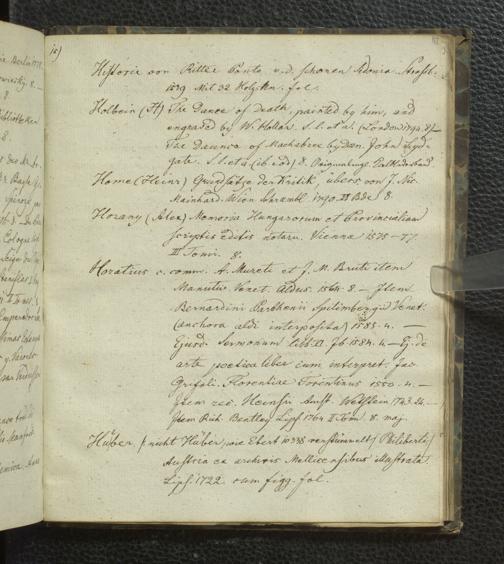 Historie von Ritter Ponto u. d. schonen Sidonia. Strasb.
1539. Mit 32 Holzschn. fol.
Holbein (H) The Dance of Death, painted by him, and
engraved by W. Hollar. S. l. et a. (London 1794. 8)
The Daunce of Machabree by Dan. John Lyd-
gate. S. l. et a (ib. id) 8.
Home (Heinr) Grundsätze der Kritik, übers. von J. Nic.
Meinhard. Wien Schrembl. 1790. II Bde 8.
Horany (Alex) Memoria Hungarorum et Provincialium
scriptis editis notorum. Viennae 1575-77
III Tomi. 8.
Horatius c. comm. A. Mureti et J. M. Bruti item
Manutii. Venet. Aldus. 1564. 8. — Item
Bernardini Parthenii Spilimbergii Venet.
(anchora aldi interposita) 1585. 4. —
Ejusd. Sermonum libb. II. Ib 1584. 4. — Ej. de
arte poetica liber cum interpret. Jac
Grifoli. Florentiae Torentinus 1550. 4. —
Item rec. Heinsii Amst. Wetstein 1743. 24. —
Item Rich. Bentley Lips 1764 II Tom. 8. maj
Hüber, (nicht Haüber, wie Ebert 10338 verstümmelt) Philiberti
Austria ex archivis Mellicensibus illustrata
Lips. 1722. cum figg. fol.